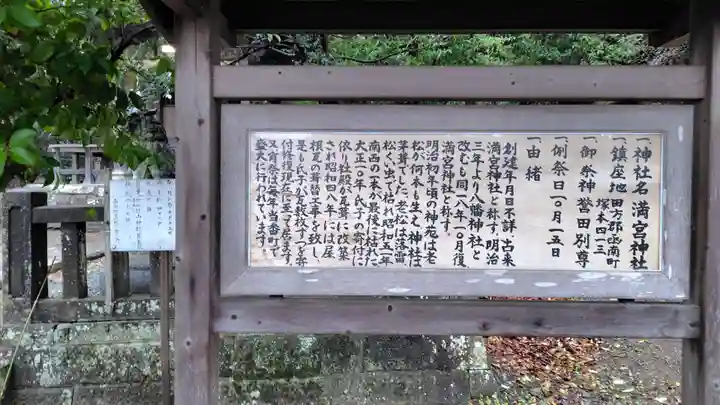 一 神社名 満宮神社
一 鎮座地 田方郡函南町
塚本四一三
一 御祭神 誉田別尊
一 例祭日 一〇月一五日
一 由緒
創建年月日不詳、古来
満宮神社と称す。明治
三年より八幡神社と
改むも同二八年一〇月復
満宮神社と称す。
明治初年頃の神苑は老
松が何本も生え神社は
茅葺でした。老松は落雷
松くい虫で枯れ昭和五一年
南西の一本が最後に枯れた
大正一〇年氏子の寄付に
依り社殿が瓦葺に改築
され昭和四八年には屋
根瓦の葺替工事を致し
是も氏子が
付修復現在に至って居ます。
又例祭は毎年当番町で
盛大に行われています。